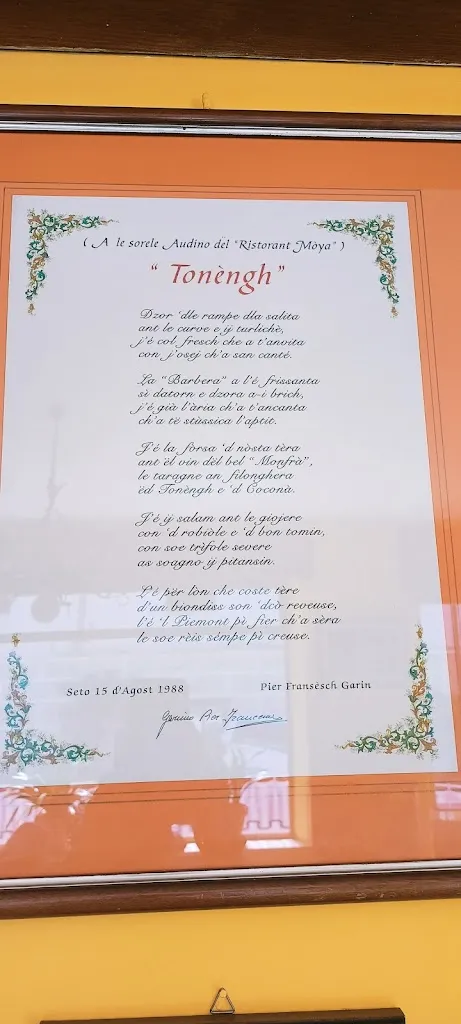 ( A le sorele Audino del "Ristorant Mòya" )
" Tonèngh "
Dzor 'dle rampe dla salita
ant le curve e ÿ turlichè,
j'é col fresch che a t'anvita
con j'osej ch'a san canté.
La "Barbera" a l'é frissanta
sì datorn e dzora a-i brich,
j'é già l'ària ch'a t'ancanta
ch'a të stùssica l'aptit.
J'é la forsa 'd nòsta tèra
ant ël vin dël bel "Monfrà",
le taragne an filonghera
ëd Tonèngh e 'd Coconà.
J'é ÿ salam ant le giojere
con 'd robiòle e 'd bon tomin,
con soe trìfole severe
as soagno ÿ pitansin.
L'é për lòn che coste tère
d'un biondiss son 'dcò reveuse,
l'é 'l Piemont pì fier ch'a sèra
le soe rèis sèmpe pì creuse.
Seto 15 d'Agost 1988
Pier Fransësch Garin